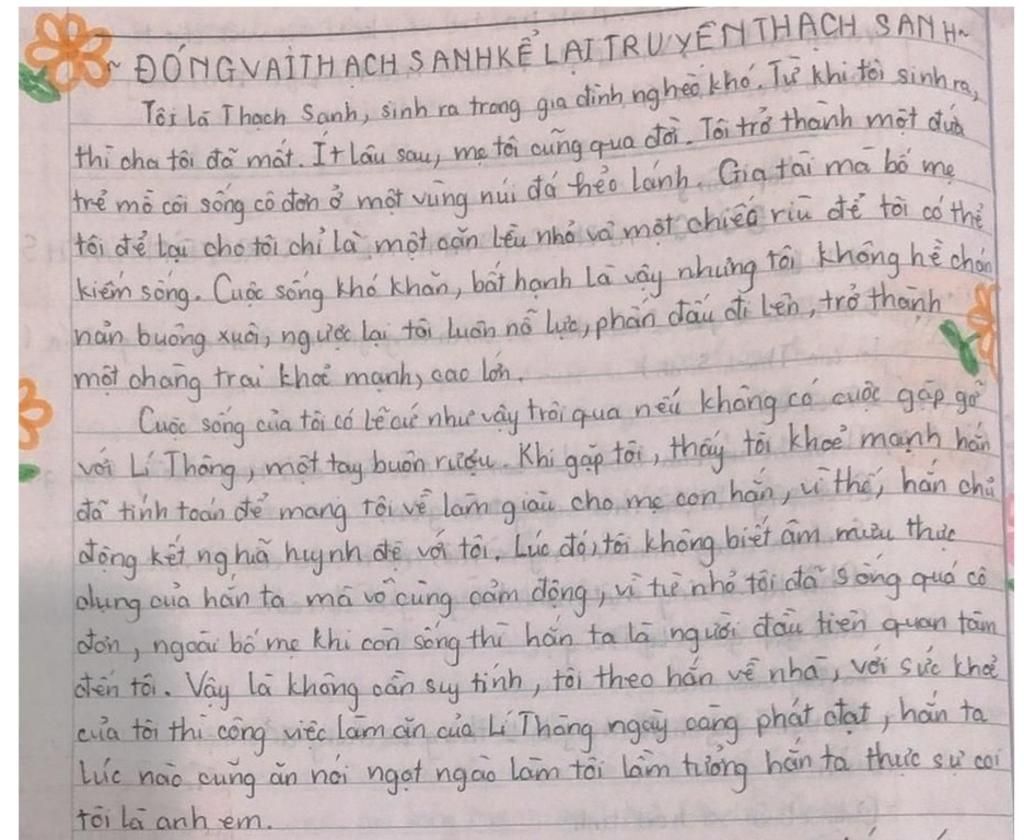 ~ ĐÓNG VAI THẠCH SANH KỂ LẠI TRUYỆN THẠCH SANH ~
Tôi là Thạch Sanh, sinh ra trong gia đình nghèo khó. Từ khi tôi sinh ra,
thì cha tôi đã mất. Ít lâu sau, mẹ tôi cũng qua đời. Tôi trở thành một đứa
trẻ mồ côi sống cô đơn ở một vùng núi đá hẻo lánh. Gia tài mà bố mẹ
tôi để lại cho tôi chỉ là một căn lều nhỏ và một chiếc rìu để tôi có thể
kiếm sống. Cuộc sống khó khăn, bất hạnh là vậy nhưng tôi không hề chán
nản buông xuôi, ngược lại tôi luôn nỗ lực, phấn đấu đi lên, trở thành
một chàng trai khoẻ mạnh, cao lớn.
Cuộc sống của tôi có lẽ cứ như vậy trôi qua nếu không có cuộc gặp gỡ
với Lí Thông, một tay buôn rượu. Khi gặp tôi, thấy tôi khoẻ mạnh hắn
đã tính toán để mang tôi về làm giàu cho mẹ con hắn, vì thế, hắn chủ
động kết nghĩa huynh đệ với tôi. Lúc đó, tôi không biết âm mưu thực
dụng của hắn ta mà vô cùng cảm động, vì từ nhỏ tôi đã sống quá cô
đơn, ngoài bố mẹ khi còn sống thì hắn ta là người đầu tiên quan tâm
đến tôi. Vậy là không cần suy tính, tôi theo hắn về nhà, với sức khoẻ
của tôi thì công việc làm ăn của Lí Thông ngày càng phát đạt, hắn ta
lúc nào cũng ăn nói ngọt ngào làm tôi lầm tưởng hắn ta thực sự coi
tôi là anh em.